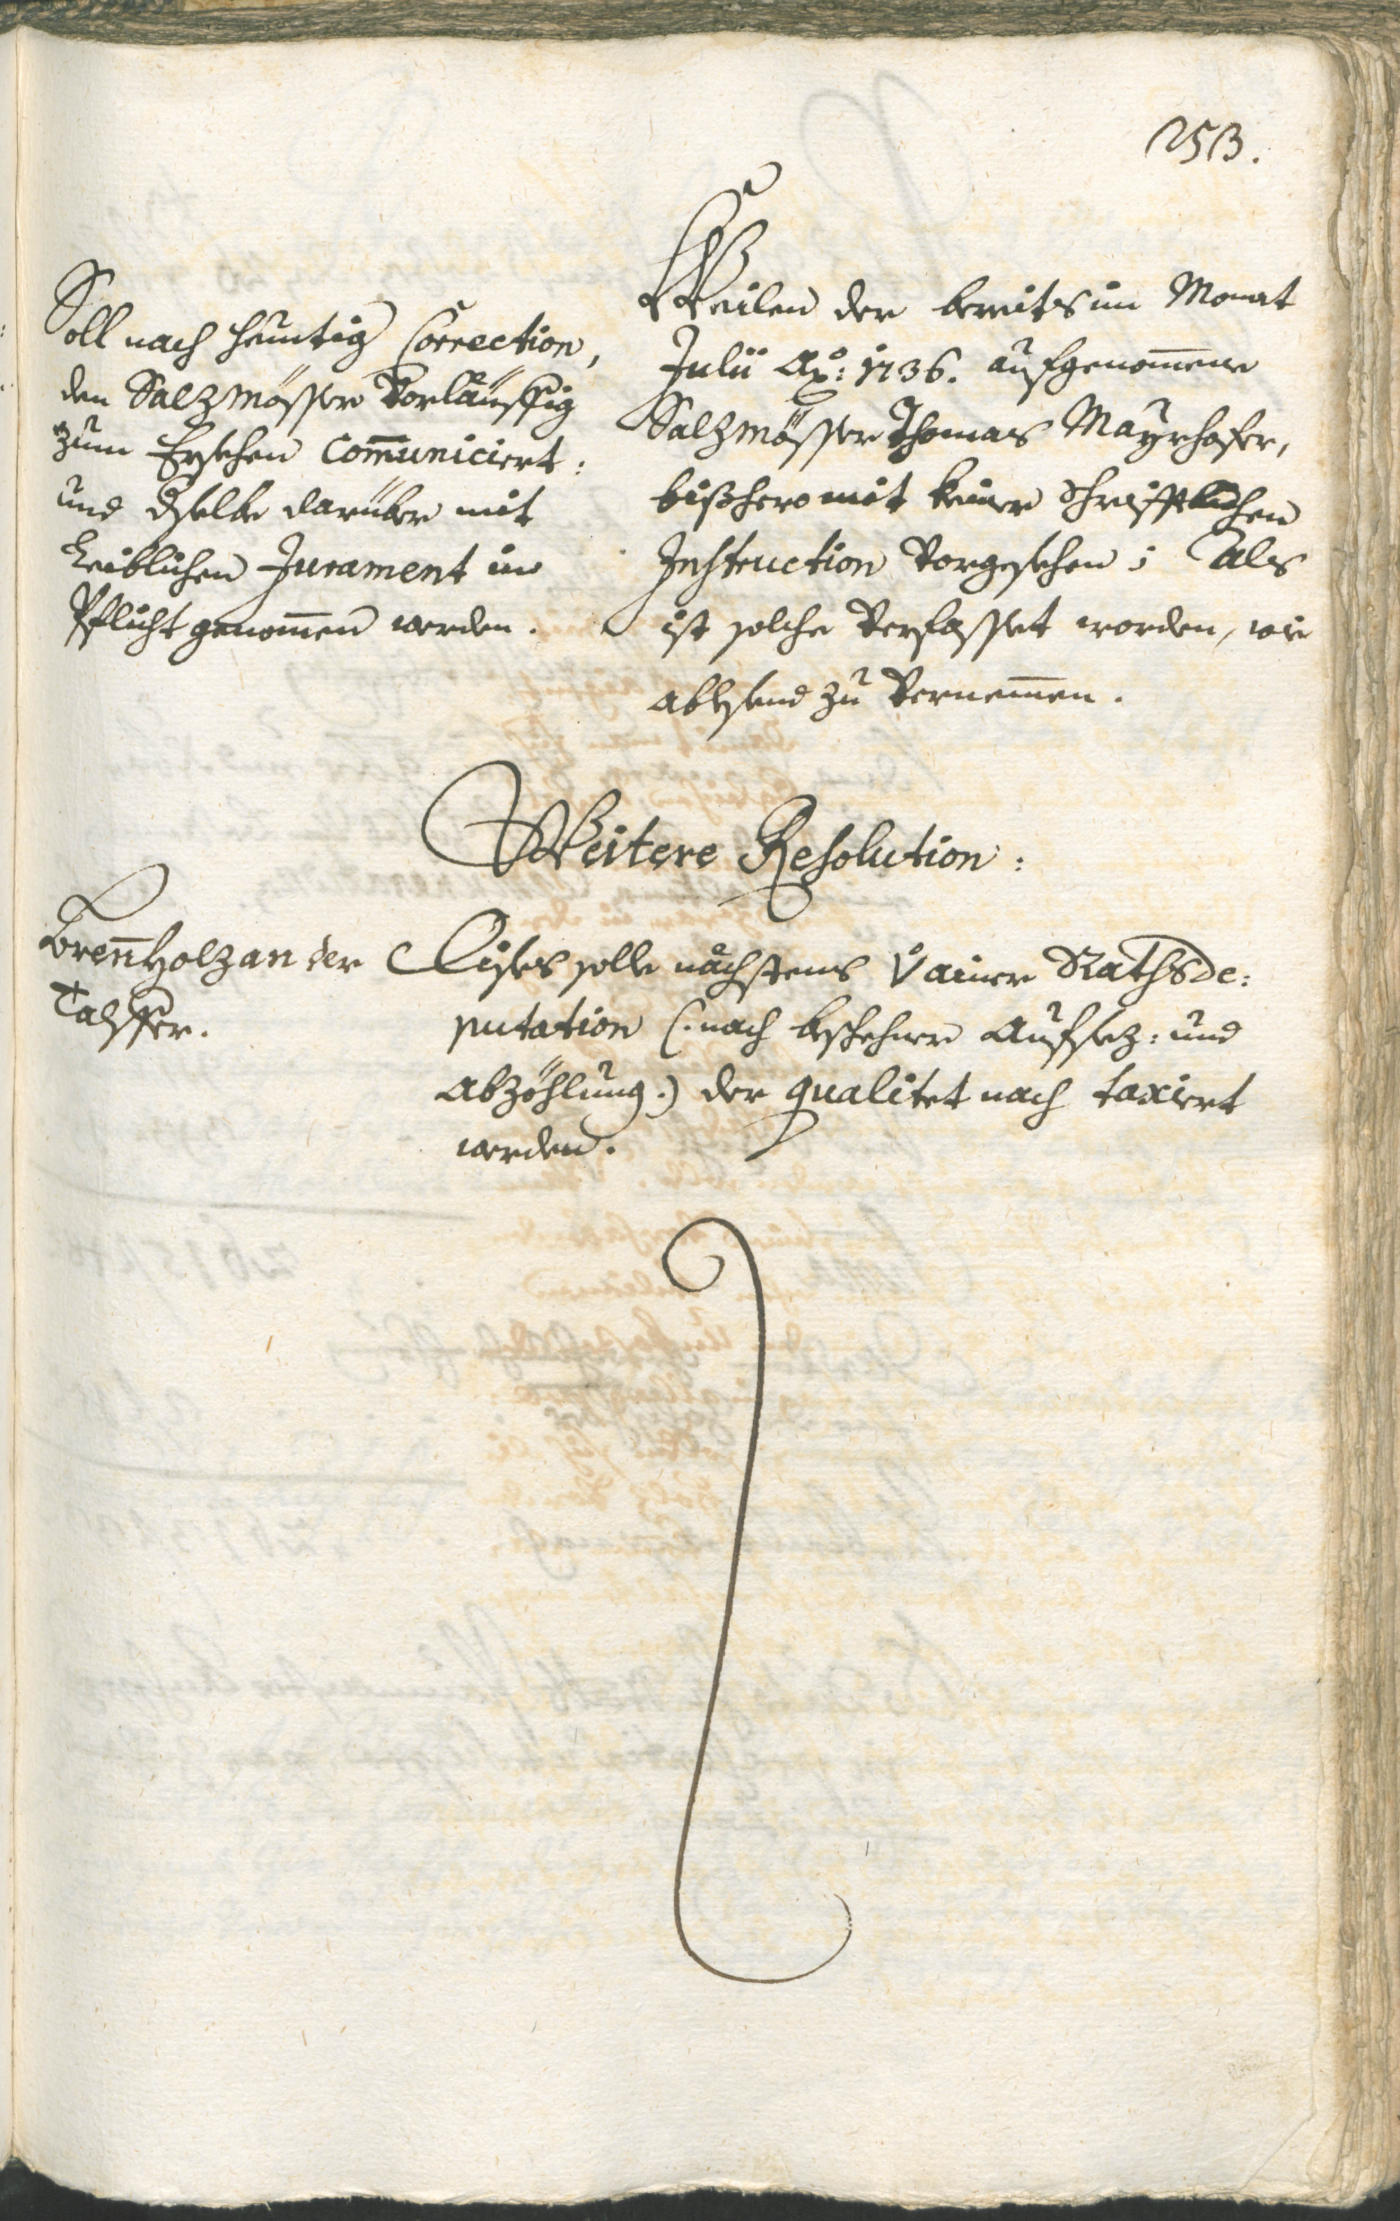 253.
Soll nach heuntig Correction,
den Salzmösser Vorläuffig
zum Ersehen Com̄uniciert:
und dselbe darüber mit
Leiblichen Jurament in
Pflicht genom̄en werden.
Weilen der bereits im Monat
Julii Aō: 1736. aufgenom̄ene
Salzmösser Thomas Mayrhofer,
bißhero mit keiner schrifftlichen
Instruction Vorgesehen; Als
ist solche Verfasset worden, wie
ablesend zu Vernem̄en.
Weitere Resolution:
Bren̄holz an der
Talffer.
Dises solle nächstens V ainer Raths de:
putation (: nach beschehner Aufsez: und
Abzöhlung:) der qualitet nach taxiert
werden.